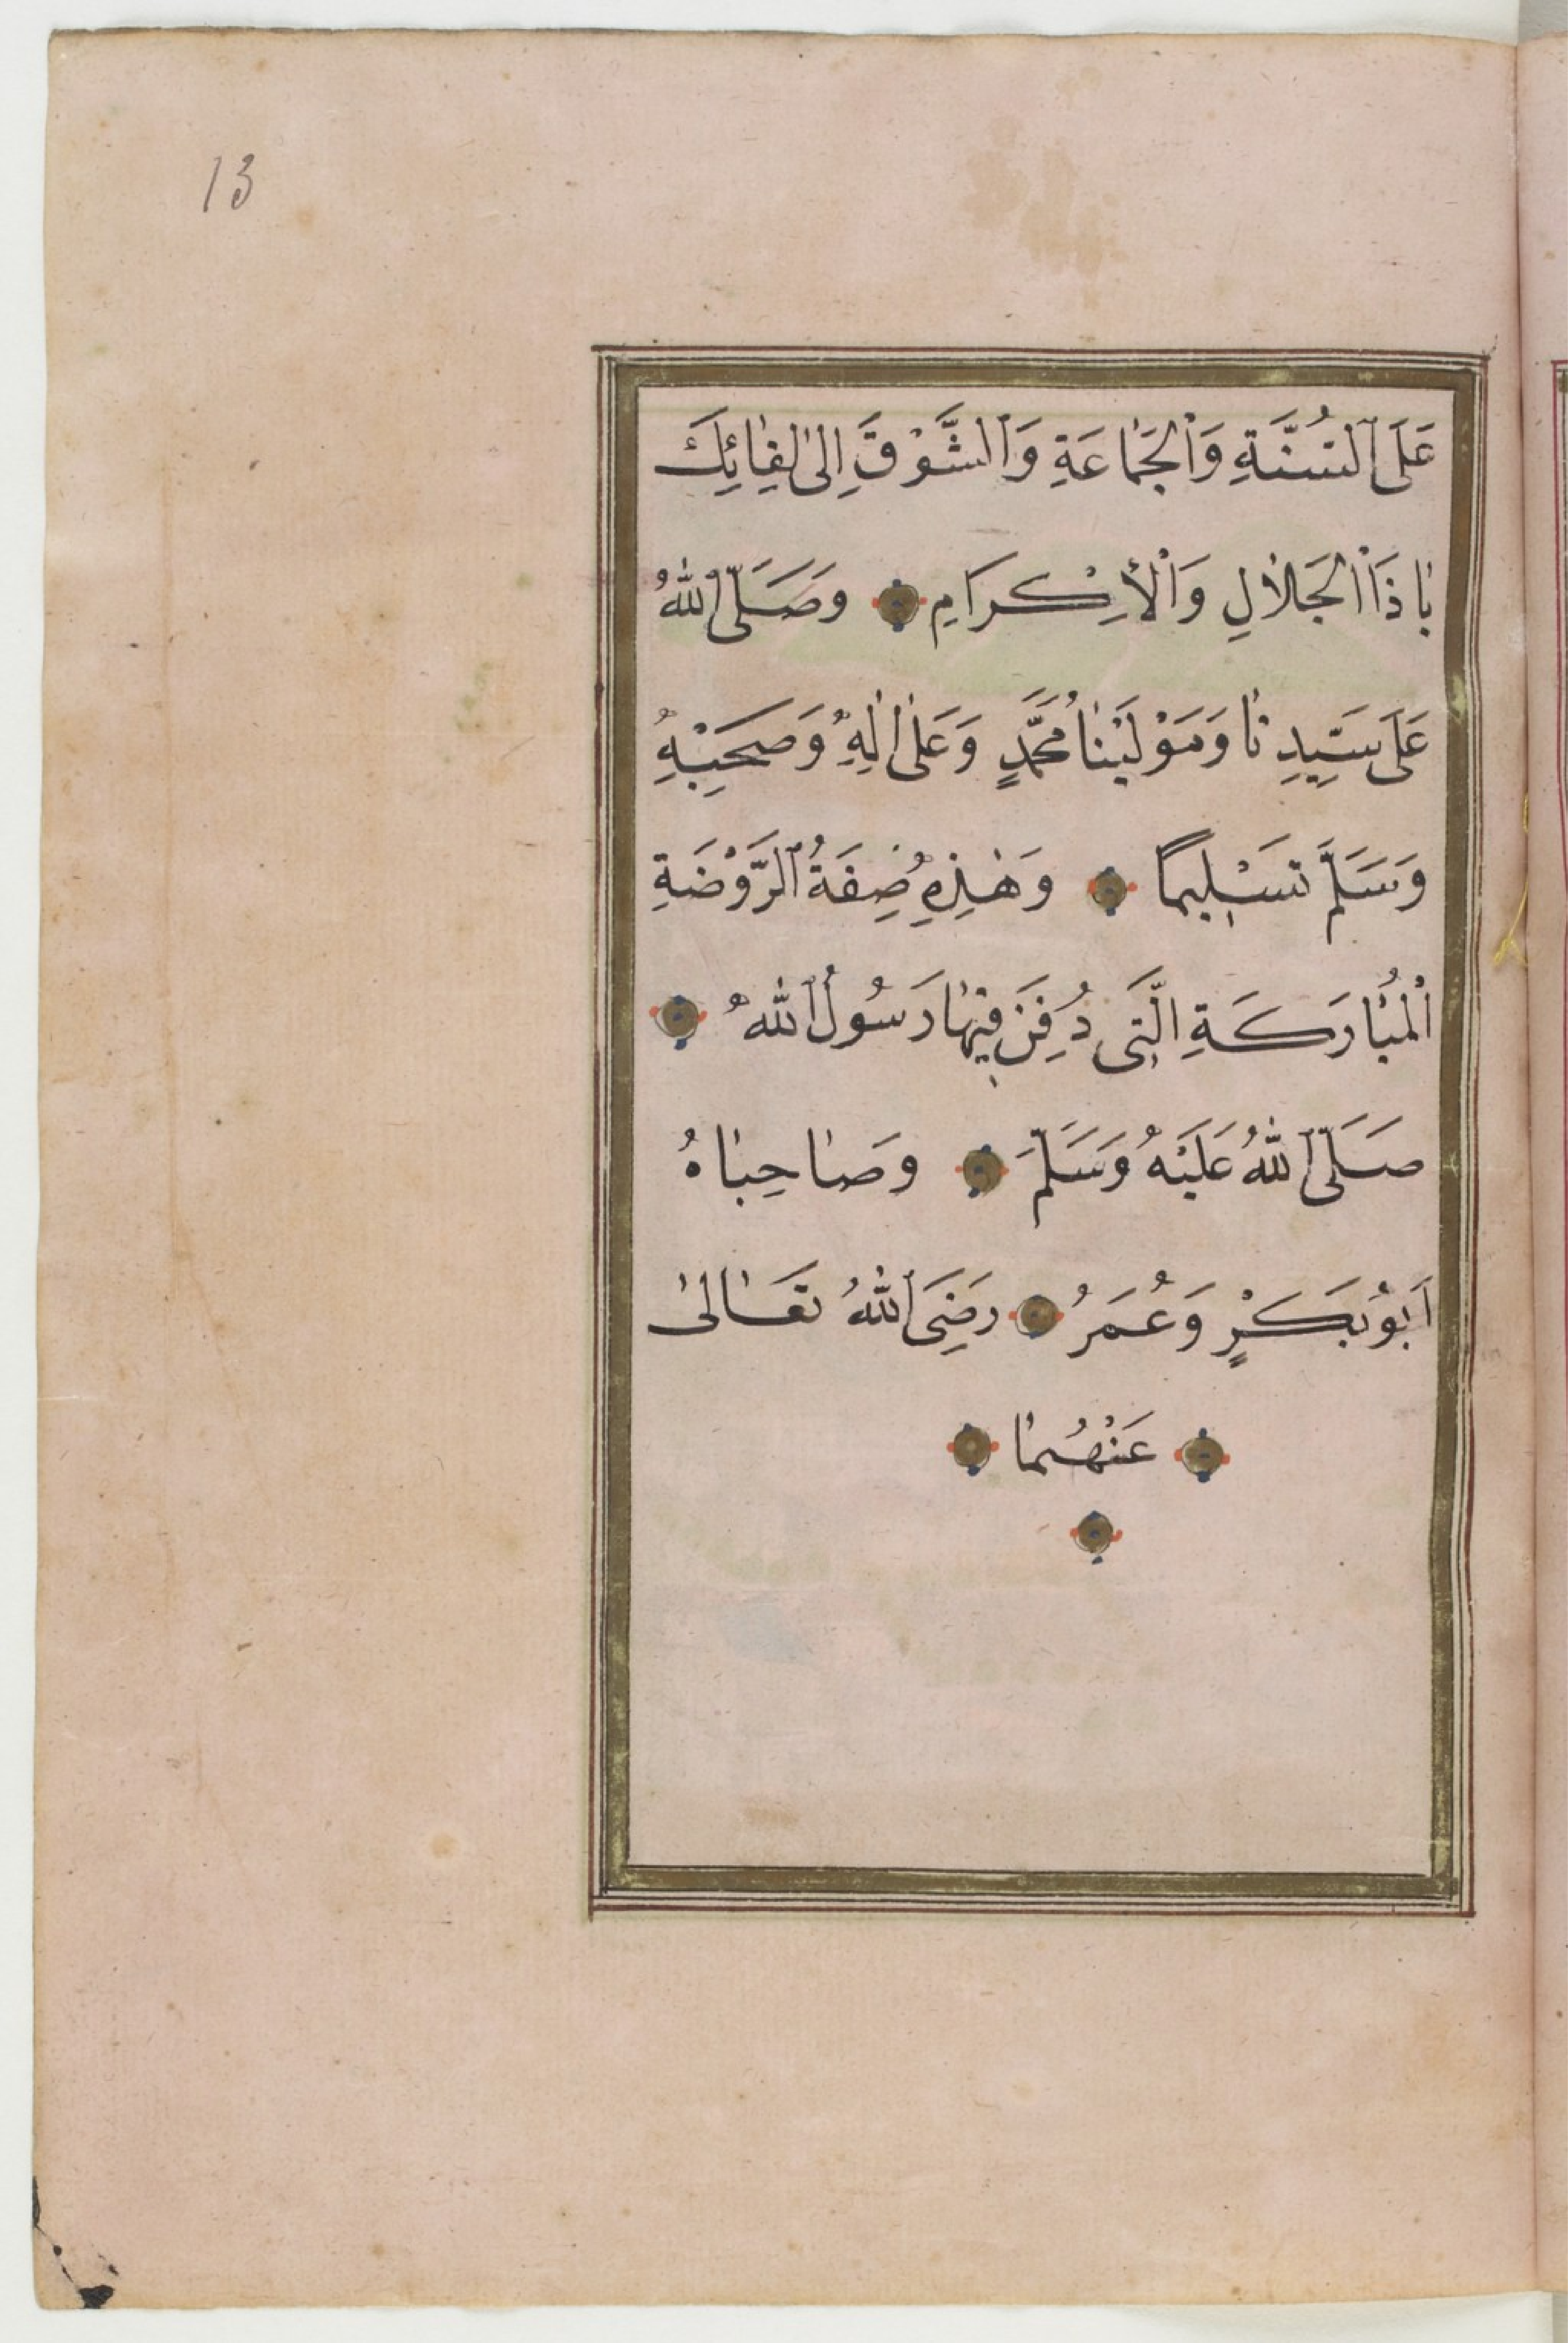 13
عَلَى ٱلسُّنَّةِ وَٱلْجَمَاعَةِ وَٱلشَّوْقَ اِلىٰ لِقَائِكَ
يَا ذَا ٱلْجَلَالِ وَٱلْأِكْرَامِ وَصَلَّى ٱللّٰهُ
عَلَى سَيِّدِنَا وَمَوْلَيْنَا مُحَمَّدٍ وَعَلٰى اٰلِهِ وَصَحْبِهِ
وَسَلَّمَ تَسْلِيمًا وَهٰذِهِ صِفَةُ ٱلرَّوْضَةِ
ٱلْمُبَارَكَةِ الَّتِى دُفِنَ فِيهَا رَسُولُ ٱللّٰهِ
صَلَّى ٱللّٰهُ عَلَيْهِ وَسَلَّمَ وَصَاحِبَاهُ
اَبُو بَكْرٍ وَعُمَرُ رَضِىَ ٱللّٰهُ تَعَالىٰ
عَنْهُمَا